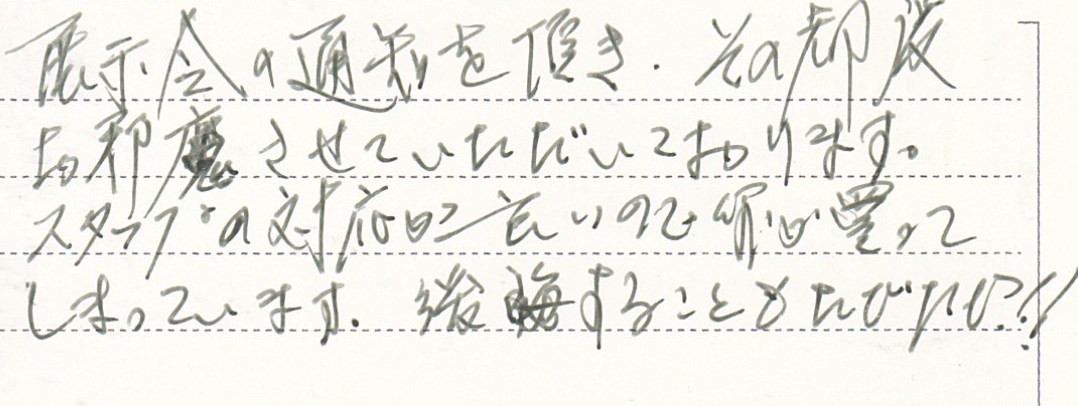 展示会の通知を頂き、その都度
お邪魔させていただいております。
スタッフの対応に言いので買って
しまっています。後悔することもたびたび?!